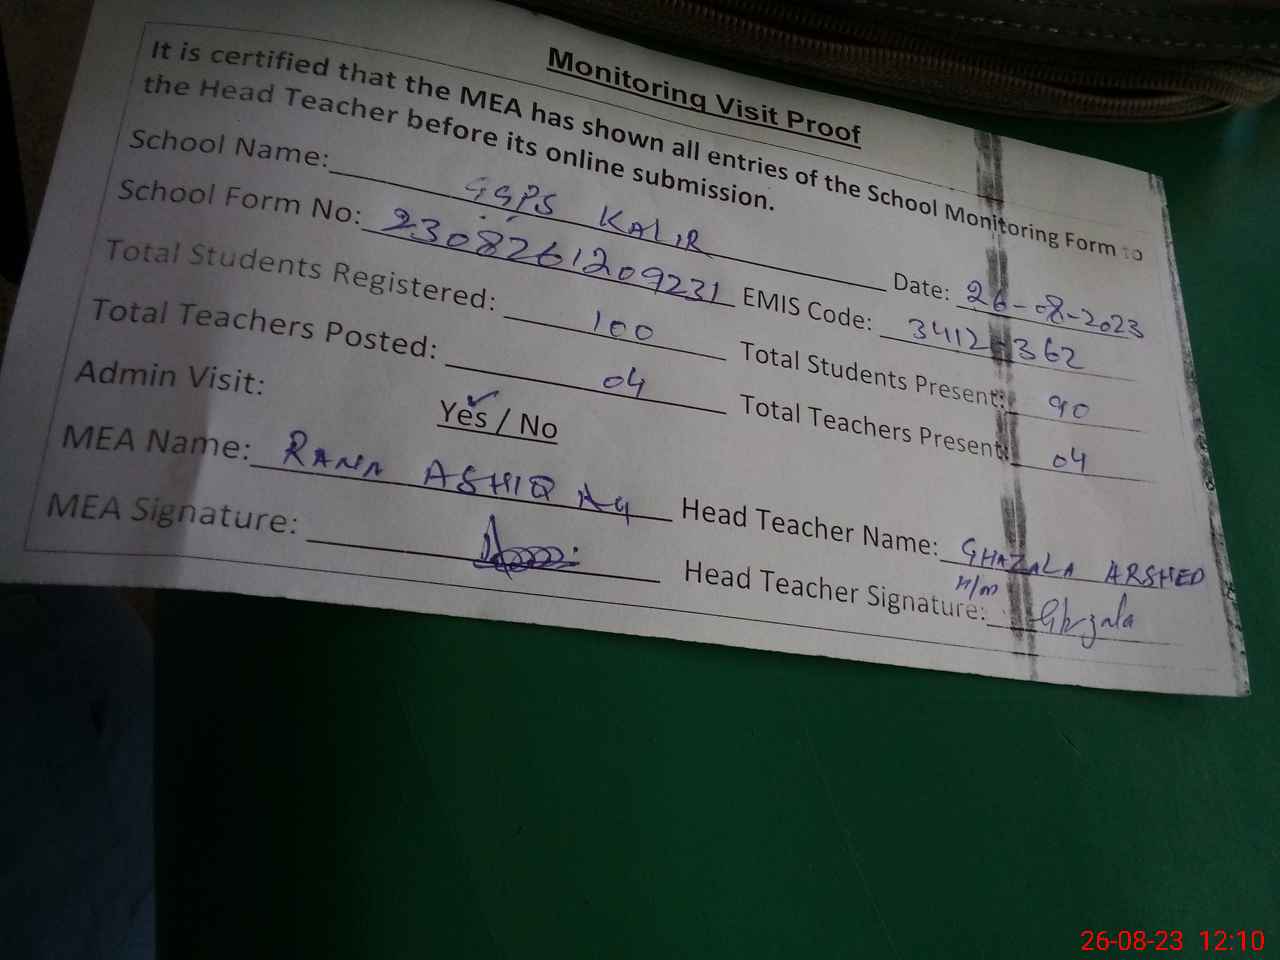 Monitoring Visit Proof
It is certified that the MEA has shown all entries of the School Monitoring Form to
the Head Teacher before its online submission.
School Name: GGPS KALIR Date: 26-08-2023
School Form No: 2308261209231 EMIS Code: 34121362
Total Students Registered: 100 Total Students Present: 90
Total Teachers Posted: 04 Total Teachers Present: 04
Admin Visit: Yes / No
MEA Name: RANA ASHIQ Head Teacher Name: GHAZALA ARSHED
MEA Signature: Head Teacher Signature: Ghzala
26-08-23 12:10